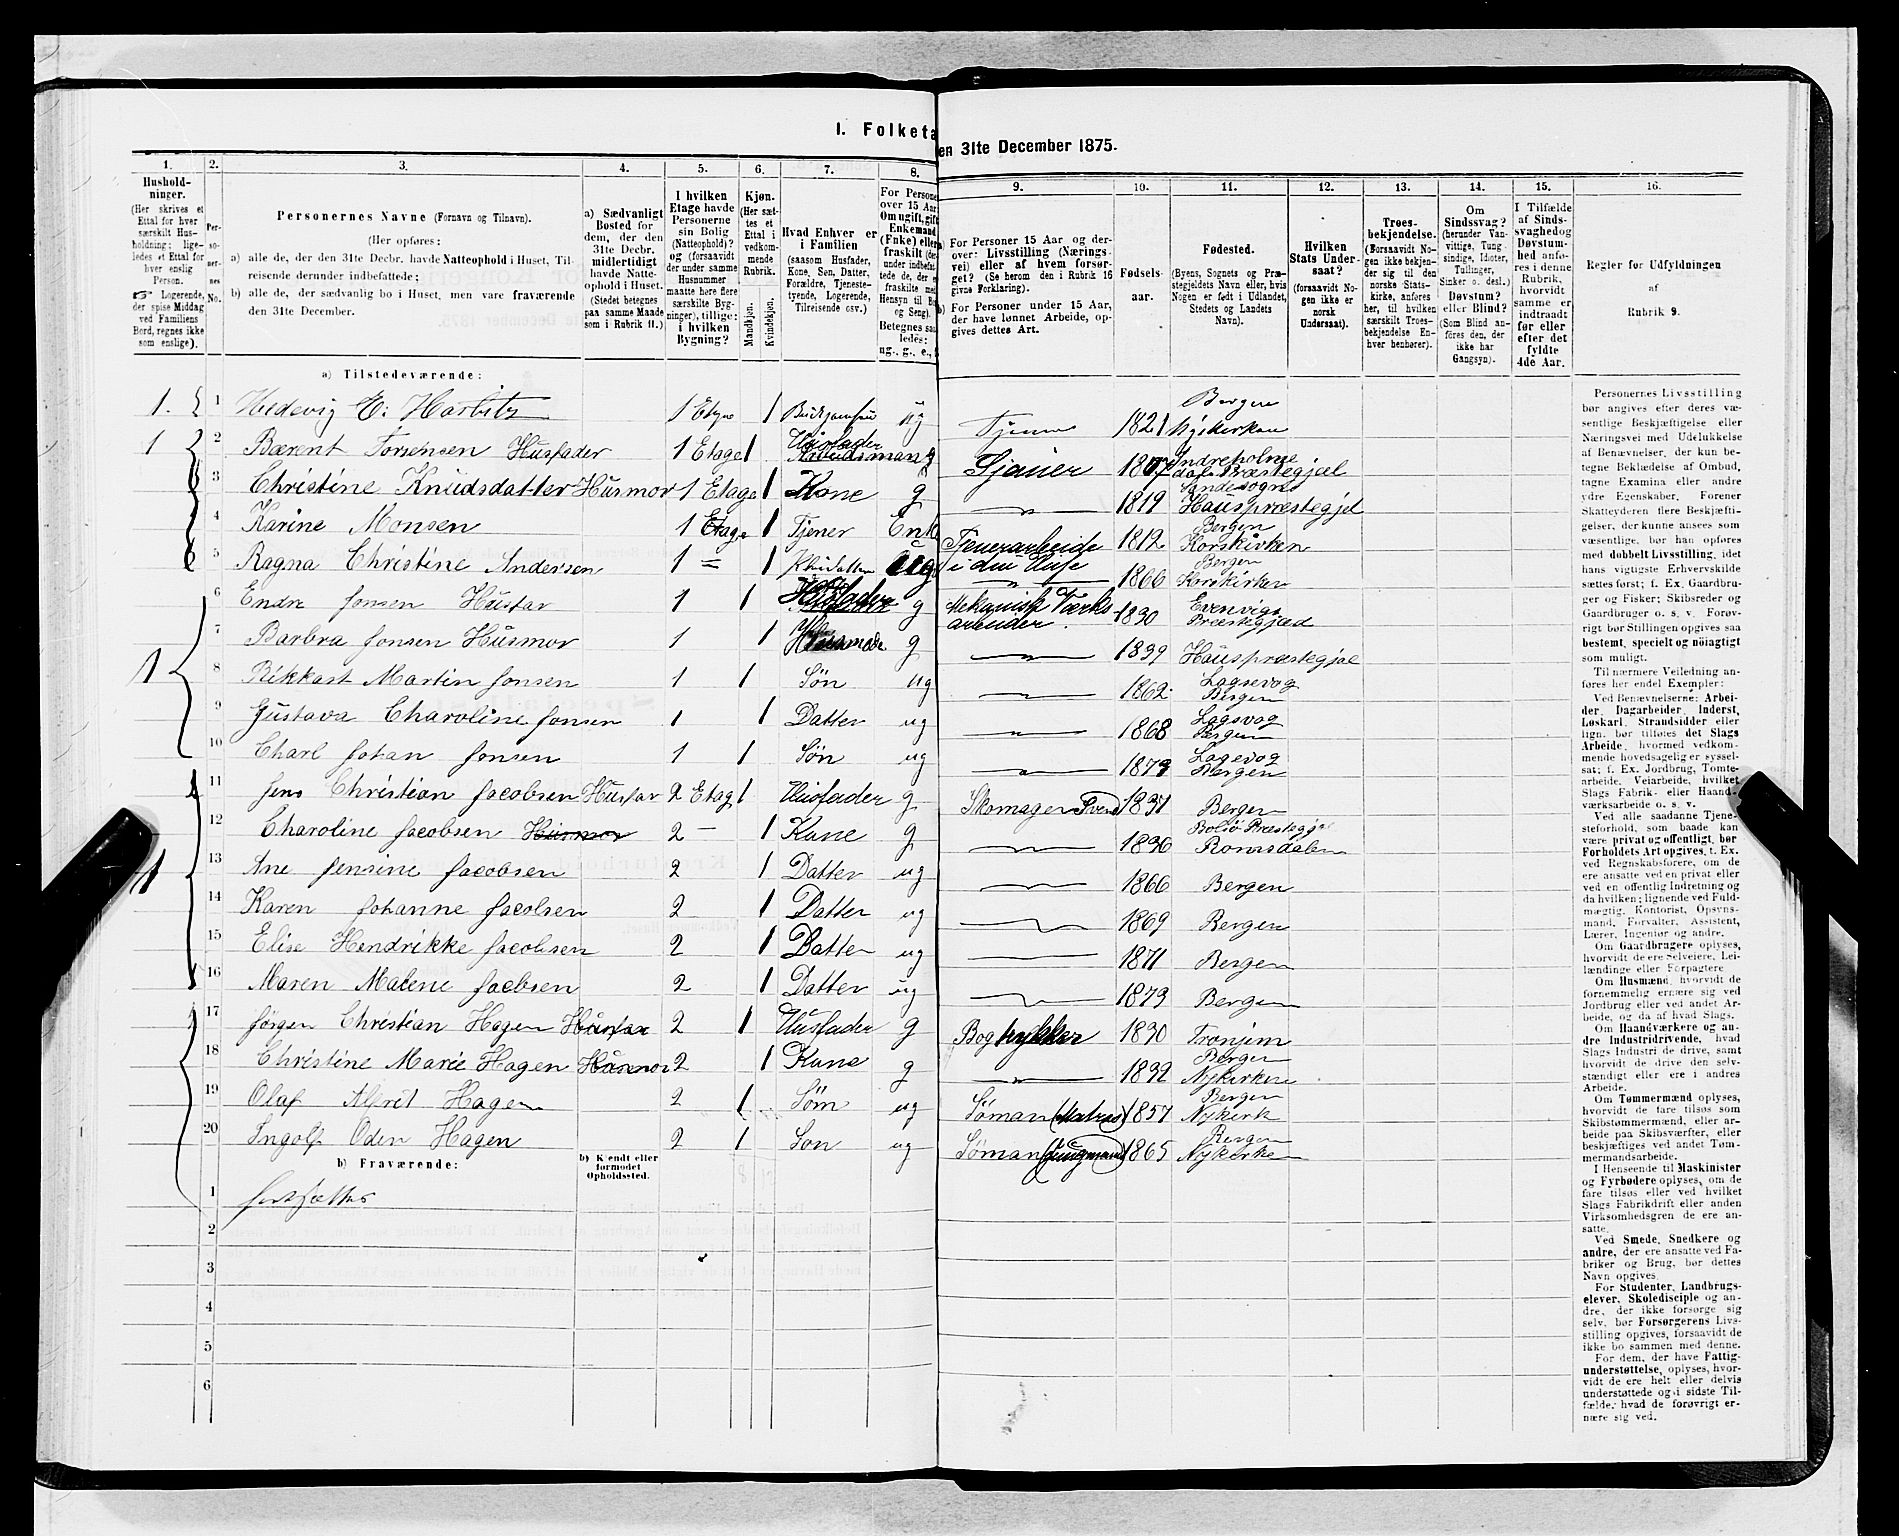 I. Folketa
en 31te December 1875.
1.
Hushold-
ninger.
(Her skrives et
Ettal for hver
særskilt Hus-
holdning; lige-
ledes et Ettal for
hver enslig
Person.
☞ Logerende,
der spise Middag
ved Familiens
Bord, regnes ikke
som enslige).
2.
Per-
so-
ner-
nes
No.
3.
Personernes Navne (Fornavn og Tilnavn).
(Her opføres:
a) alle de, der den 31te Decbr. havde Natteophold i Huset, Til-
reisende derunder indbefattede;
b) alle de, der sædvanlig bo i Huset, men vare fraværende
den 31te December.
4.
a) Sædvanligt
Bosted for
dem, der den
31te Decbr.
midlertidigt
havde Natte-
ophold i Huset.
(Stedet betegnes
paa samme Maade
som i Rubrik 11.)
5.
I hvilken
Etage havde
Personerne
sin Bolig
(Natteophold)?
og (forsaavidt
der under samme
Husnummer
maatte høre flere
særskilte Byg-
ninger), tillige:
i hvilken
Bygning?
6.
Kjøn.
(Her sæt-
tes et
Ettal i
vedkom-
mende
Rubrik.
Mandkjøn.
Kvindekjøn.
7.
Hvad Enhver er
i Familien
(saasom Husfader,
Kone, Søn, Datter,
Forældre, Tjeneste-
tyende, Logerende,
Tilreisende osv.)
8.
For Persone
over 15 Aar
Om ugift, gift
Enkemand
(Enke) eller
fraskilt (der-
under indbefat-
tede de, der e
fraskilte med
Hensyn til Bo
og Seng).
Betegnes saa
ledes:
ug., g., e., f
9.
a) For Personer 15 Aar og der-
over: Livsstilling (Nærings-
vei) eller af hvem forsør-
get? (Se herom den i Rubrik 16
givne Forklaring).
b) For Personer under 15 Aar,
der have lønnet Arbeide, op-
gives dettes Art.
10.
Fødsels-
aar.
11.
Fødested.
(Byens, Sognets og Præ-
stegjeldets Navn eller, hvis
Nogen er født i Udlandet,
Stedets og Landets
Navn).
12.
Hvilken
Stats Under-
saat?
(forsaavidt No-
gen ikke er
norsk
Undersaat).
13.
Troes-
bekjendelse.
(Forsaavidt No-
gen ikke bekjen-
der sig til den
norske Stats-
kirke, anføres
her, til hvilken
særskilt Troes-
bekjendelse En-
hver henhører).
14.
Om
Sindssvag?
(herunder Van-
vittige, Tung-
sindige, Idioter,
Tullinger,
Sinker o. desl.)
Døvstum?
eller Blind?
(Som Blind an-
føres den, der
ikke har
Gangsyn).
15.
I Tilfælde
af Sinds-
svaghed og
Døvstum-
hed anfø-
res i denne
Rubrik,
hvorvidt
samme er
indtraadt
før eller
efter det
fyldte
4de Aar.
16.
Regler før Udfyldningen
af
Rubrik 9.
a) Tilstedeværende:
1. 1 Hedevig E: Harbitz 1 Etge 1 ug 1821 Bergen Nykirken
1 2 Bærent Torsensen Husfader 1 Etage 1 Husfader Arbeidsmand g Sjauer Indreholme dals Præstegjæl
3 Christine Knudsdatter Husmor 1 Etage 1 Kone g 1819 Sandesogne Hauspræstegjel
4 Karine Monsen 1 Etage 1 Tjener Enke Tjenerarbeide i den Huse 1812 Bergen Korskirken
5 Ragna Christine Andersen 1 = 1 ug 1866 Bergen Korskirken
1 6 Endre Jonsen Husfar 1 1 Husfader g Mekanisk Værks arbeider. 1830 Evenvigs Præstegjæd
7 Barbra Jonsen Husmor 1 1 Husmoder g 1839 Hauspræstegjæl
8 Rikkart Martin Jonsen 1 1 Søn ug 1862 Lagsevog Bergen
9 Gustava Charoline Jonsen 1 1 Datter ug 1868 Lagsvog Bergen
10 Charl Johan Jonsen 1 1 Søn ug 1873 Lagevog Bergen
1 11 Jens Christian Jacobsen Husfar 2 Etag 1 Husfader g Skomager Svend 1837 Bergen
12 Charoline Jacobsen Husmor 2 – 1 Kone g 1836 Bolsø Præstegjæl Romsdalen
13 Ane Jensine Jacobsen 2 1 Datter ug 1866 Bergen
14 Karen Johanne Jacobsen 2 1 Datter ug 1869 Bergen
15 Elise Hendrikke Jacobsen 2 1 Datter ug 1871 Bergen
16 Maren Malene Jacobsen 2 1 Datter ug 1873 Bergen
17 Jørgen Christian Hagen Husfar 2 1 Husfader g Bogtrykker 1830 Tronjem
18 Christine Marie Hagen Husmor 2 1 Kone g 1832 Bergen Nykirken
19 Olaf Alfret Hagen 2 1 Søn ug Søman (Matros) 1857 Bergen Nykirk
20 Ingolf Oden Hagen 2 1 Son ug Søman (Jungmand) 1865 Bergen Nykirken
b) Fraværende:
b) Kjendt eller
formodet
Opholdssted.
1 fortsættes
2
3
4
5
6
Personernes Livsstilling
bør angives efter deres væ-
sentlige Beskjæftigelse eller
Næringsvei med Udelukkelse
af Benævnelser, der kun be-
tegne Beklædelse af Ombud,
tagne Examina eller andre
ydre Egenskaber. Forener
Skatteyderen flere Beskjæfti-
gelser, der kunne ansees som
væsentlige, bør han opføres
med dobbelt Livsstilling, idet
hans vigtigste Erhvervskilde
sættes først; f. Ex. Gaardbru-
ger og Fisker; Skibsreder og
Gaardbruger o. s. v. Forøv-
rigt bør Stillingen opgives saa
bestemt, specielt og nöiagtigt
som muligt.
Til nærmere Veiledning an-
føres her endel Exempler:
Ved Benævnelserne: Arbei-
der, Dagarbeider, Inderst,
Løskarl, Strandsidder eller
lign. bør tilføres det Slags
Arbeide, hvormed vedkom-
mende hovedsagelig er syssel-
sat; f. Ex. Jordbrug, Tomte-
arbeide, Veiarbeide, hvilket
Slags Fabrik- eller Haand-
værksarbeide o. s. v.
Ved alle saadanne Tjene-
steforhold, som baade kan
være privat og offentligt, bør
Forholdets Art opgives, t. Ex.
ved Regnskabsførere, om de
ere ansatte ved en privat eller
ved en offentlig Indretning og
da hvilken; lignende ved Fuld-
mægtig, Kontorist, Opsyns-
mand, Forvalter, Assistent,
Lærer, Ingeniør og andre.
Om Gaardbrugere oplyses,
hvorvidt de ere Selveiere, Lei-
lændinge eller Forpagtere
Om Husmænd, hvorvidt de
fornemmelig ernære sig ved
Jordbrug eller ved andet Ar-
beide, og da af hvad Slags.
Om Haandværkere og an-
dre Industridrivende, hvad
Slags Industri de drive, samt
hvorvidt de drive den selv-
stændigt eller ere i andres
Arbeide.
Om Tømmermænd oplyses,
hvorvidt de fare tilsøs som
Skibstømmermænd, eller ar-
beide paa Skibsværfter, eller
beskjæftiges ved andet Tøm-
mermandsarbeide.
I Henseende til Maskinister
og Fyrbødere oplyses, om de
fare tilsøs eller ved hvilket
Slags Fabrikdrift eller anden
Virksomhedsgren de ere an-
satte.
Ved Smede, Snedkere og
andre, der ere ansatte ved Fa-
briker og Brug, bør dettes
Navn opgives.
For Studenter, Landbrugs-
elever, Skoledisciple og an-
dre, der ikke forsørge sig
selv, bør Forsørgerens Livs-
stilling opgives, forsaavidt de
ikke bo sammen med denne.
For dem, der have Fattig-
understøttelse, oplyses, hvor-
vidt de ere helt eller delvis
understøttede og i sidste Til-
fælde, hvad de forøvrigt er-
nære sig ved.